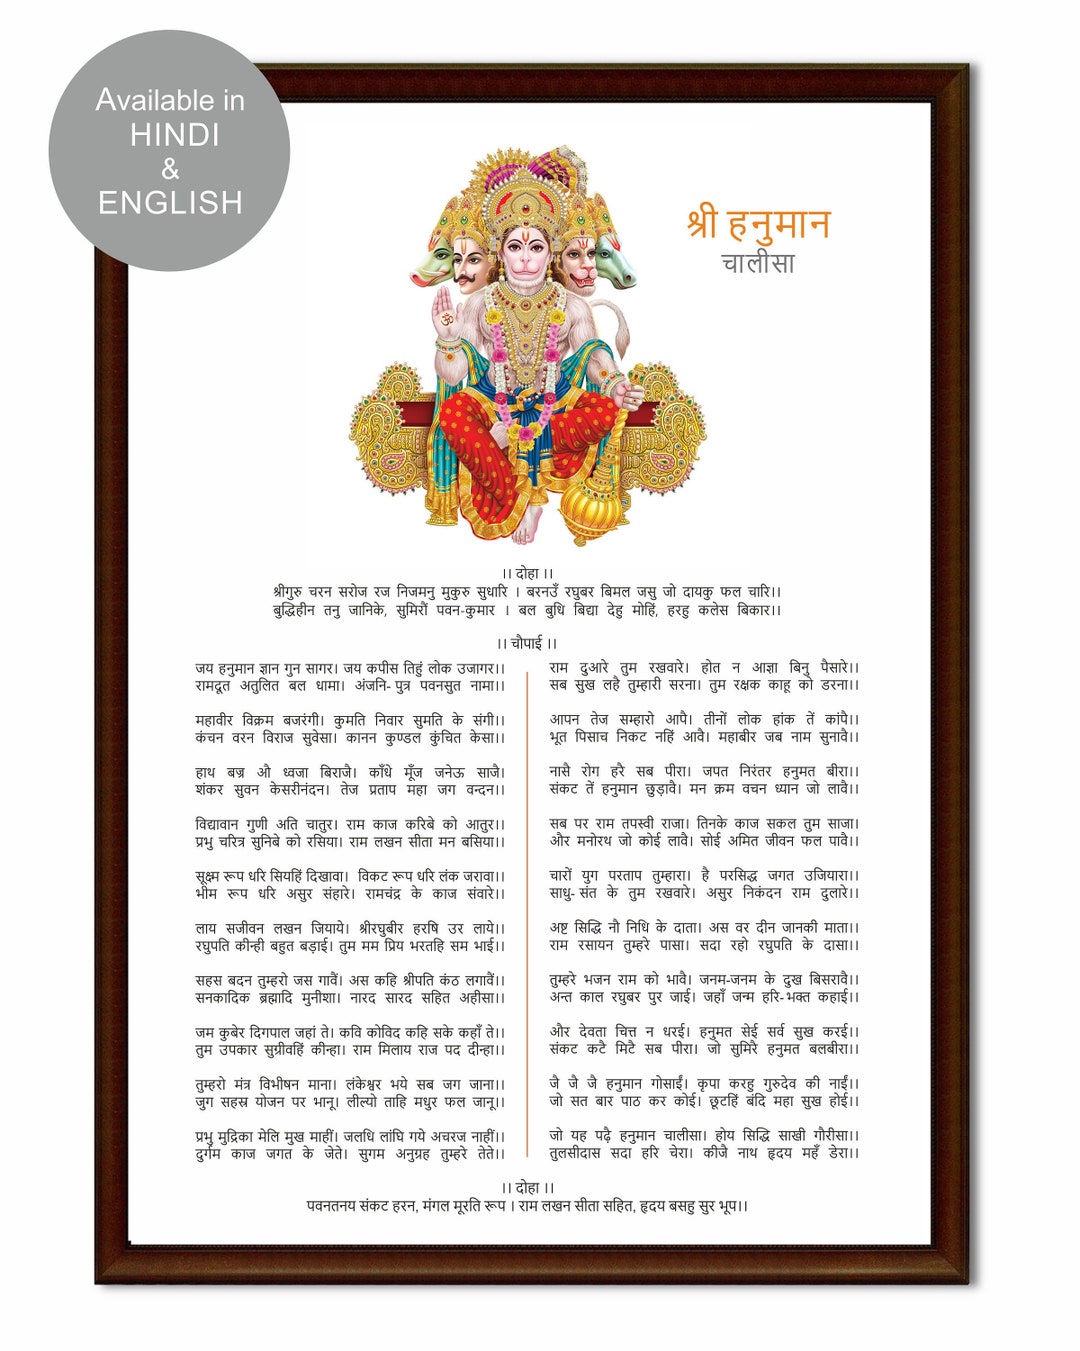 Available in
HINDI
&
ENGLISH
श्री हनुमान
चालीसा
।। दोहा ।।
श्रीगुरु चरन सरोज रज निजमनु मुकुरु सुधारि । बरनउँ रघुबर बिमल जसु जो दायकु फल चारि।।
बुद्धिहीन तनु जानिके, सुमिरौं पवन-कुमार । बल बुधि बिद्या देहु मोहिं, हरहु कलेस बिकार।।
।। चौपाई ।।
जय हनुमान ज्ञान गुन सागर। जय कपीस तिहुं लोक उजागर।।
रामदूत अतुलित बल धामा। अंजनि- पुत्र पवनसुत नामा।।
महावीर विक्रम बजरंगी। कुमति निवार सुमति के संगी।।
कंचन वरन विराज सुवेसा। कानन कुण्डल कुंचित केसा।।
हाथ बज्र औ ध्वजा बिराजै। काँधे मूँज जनेऊ साजै।
शंकर सुवन केसरीनंदन। तेज प्रताप महा जग वन्दन।।
विद्यावान गुणी अति चातुर। राम काज करिबे को आतुर।।
प्रभु चरित्र सुनिबे को रसिया। राम लखन सीता मन बसिया।।
सूक्ष्म रूप धरि सियहिं दिखावा। विकट रूप धरि लंक जरावा।।
भीम रूप धरि असुर संहारे। रामचंद्र के काज संवारे।।
लाय सजीवन लखन जियाये। श्रीरघुबीर हरषि उर लाये।।
रघुपति कीन्ही बहुत बड़ाई। तुम मम प्रिय भरतहि सम भाई।।
सहस बदन तुम्हरो जस गावैं। अस कहि श्रीपति कंठ लगावैं।।
सनकादिक ब्रह्मादि मुनीशा। नारद सारद सहित अहीसा।।
जम कुबेर दिगपाल जहां ते। कवि कोविद कहि सके कहाँ ते।।
तुम उपकार सुग्रीवहिं कीन्हा। राम मिलाय राज पद दीन्हा।।
तुम्हरो मंत्र विभीषन माना। लंकेश्वर भये सब जग जाना।।
जुग सहस्र योजन पर भानू। लील्यो ताहि मधुर फल जानू।।
प्रभु मुद्रिका मेलि मुख माहीं। जलधि लांघि गये अचरज नाहीं।।
दुर्गम काज जगत के जेते। सुगम अनुग्रह तुम्हरे तेते।।
राम दुआरे तुम रखवारे। होत न आज्ञा बिनु पैसारे।।
सब सुख लहै तुम्हारी सरना। तुम रक्षक काहू को डरना।।
आपन तेज सम्हारो आपै। तीनों लोक हांक तें कांपै।।
भूत पिसाच निकट नहिं आवै। महाबीर जब नाम सुनावै।।
नासै रोग हरै सब पीरा। जपत निरंतर हनुमत बीरा।।
संकट तें हनुमान छुड़ावै। मन क्रम वचन ध्यान जो लावै।।
सब पर राम तपस्वी राजा। तिनके काज सकल तुम साजा।
और मनोरथ जो कोई लावै। सोई अमित जीवन फल पावै।।
चारों युग परताप तुम्हारा। है परसिद्ध जगत उजियारा।।
साधु- संत के तुम रखवारे। असुर निकंदन राम दुलारे।।
अष्ट सिद्धि नौ निधि के दाता। अस वर दीन जानकी माता।।
राम रसायन तुम्हरे पासा। सदा रहो रघुपति के दासा।।
तुम्हरे भजन राम को भावै। जनम-जनम के दुख बिसरावै।।
अन्त काल रघुबर पुर जाई। जहाँ जन्म हरि-भक्त कहाई।।
और देवता चित्त न धरई। हनुमत सेई सर्व सुख करई।।
संकट कटै मिटै सब पीरा। जो सुमिरै हनुमत बलबीरा।।
जै जै जै हनुमान गोसाईं। कृपा करहु गुरुदेव की नाईं।।
जो सत बार पाठ कर कोई। छूटहिं बंदि महा सुख होई।।
जो यह पढ़ै हनुमान चालीसा। होय सिद्धि साखी गौरीसा।।
तुलसीदास सदा हरि चेरा। कीजै नाथ हृदय महँ डेरा।।
।। दोहा ।।
पवनतनय संकट हरन, मंगल मूरति रूप । राम लखन सीता सहित, हृदय बसहु सुर भूप।।